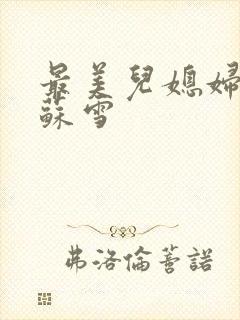 最美兒媳婦
蘇雪
弗洛倫蒼諾